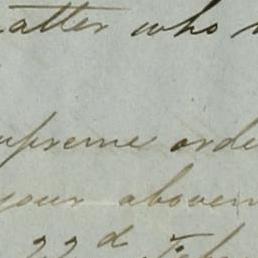 atter who
upreme orde
your abovem
22d Feb